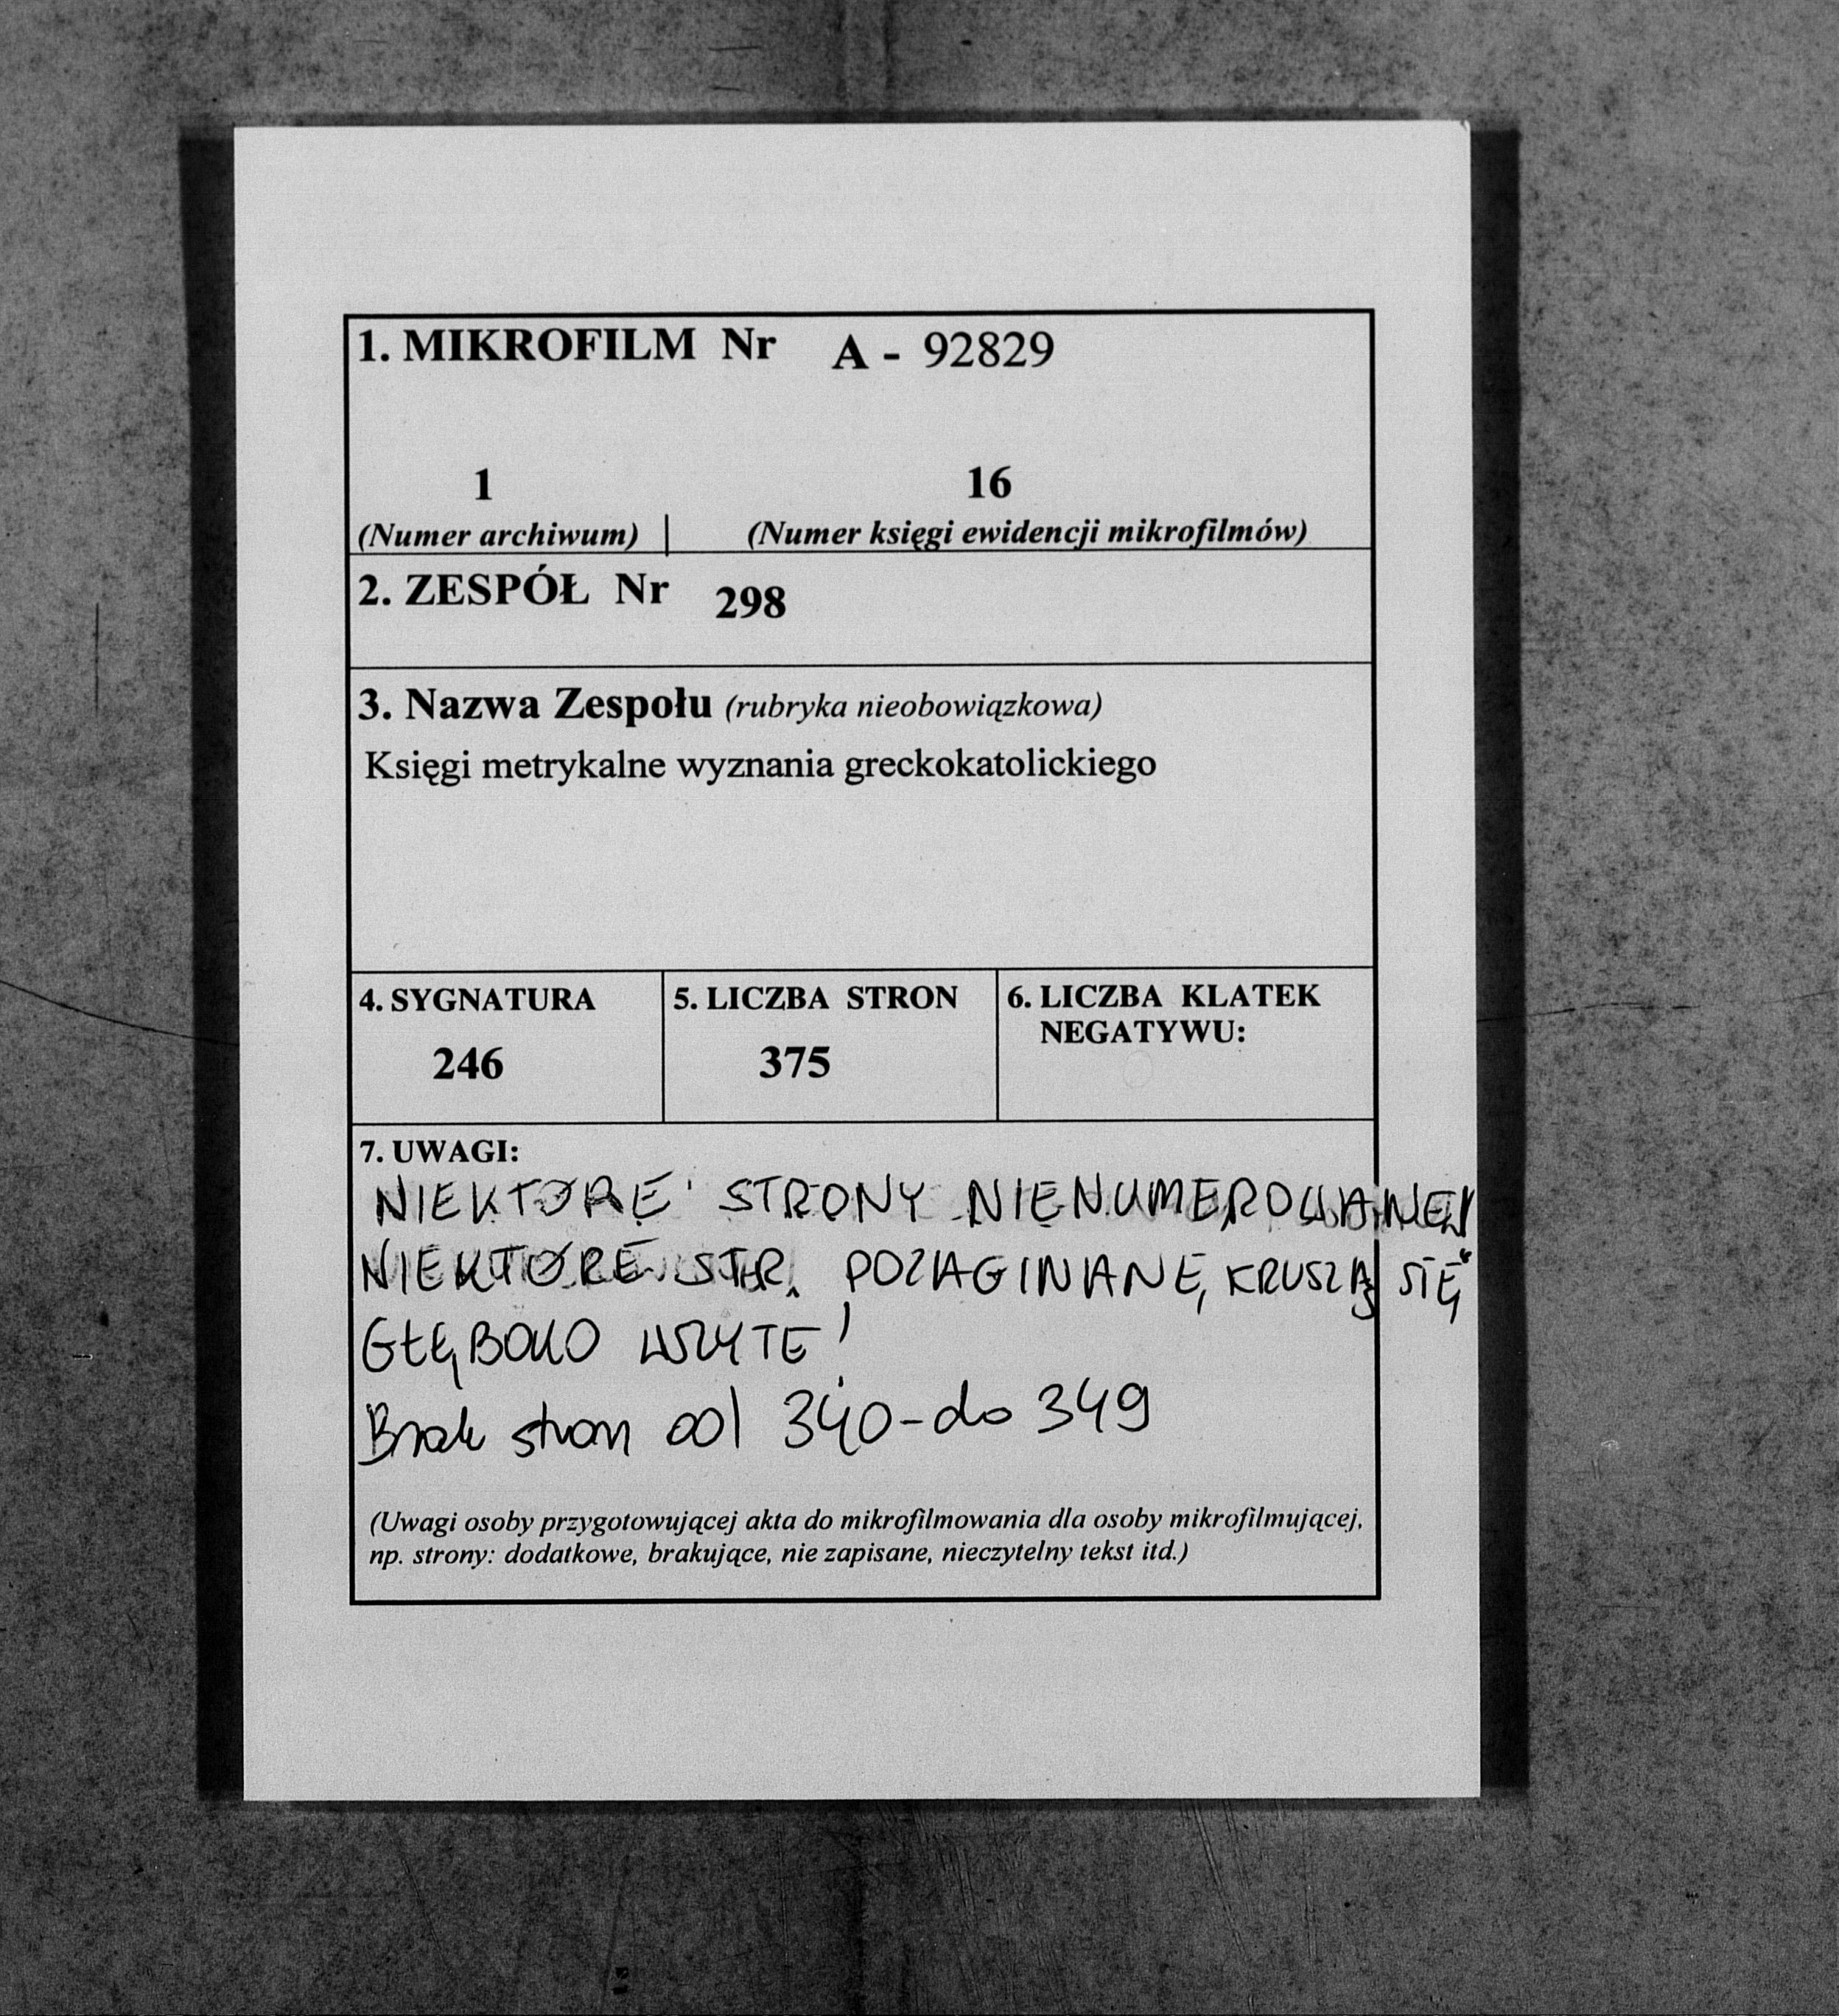 1. MIKROFILM Nr A - 92829
1 16
(Numer archiwum) | (Numer księgi ewidencji mikrofilmów)
2. ZESPÓŁ Nr 298
3. Nazwa Zespołu (rubryka nieobowiązkowa)
Księgi metrykalne wyznania greckokatolickiego
4. SYGNATURA
246
5. LICZBA STRON
375
6. LICZBA KLATEK
NEGATYWU:
7. UWAGI:
NIEKTÓRE STRONY NIENUMEROWANE!
NIEKTÓRE STR. POZAGINANE, KRUSZĄ SIĘ
GŁĘBOKO WSZYTE!
Brak stron od 340-do 349
(Uwagi osoby przygotowującej akta do mikrofilmowania dla osoby mikrofilmującej,
np. strony: dodatkowe, brakujące, nie zapisane, nieczytelny tekst itd.)